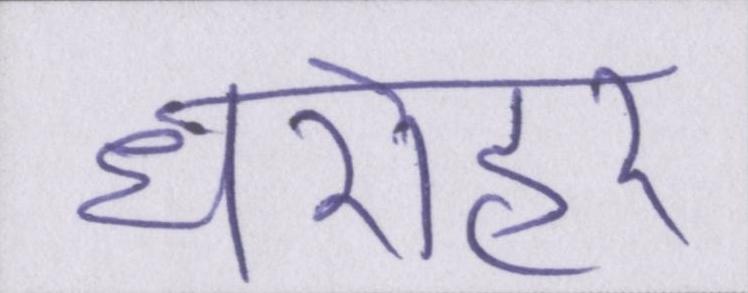 धरोहर